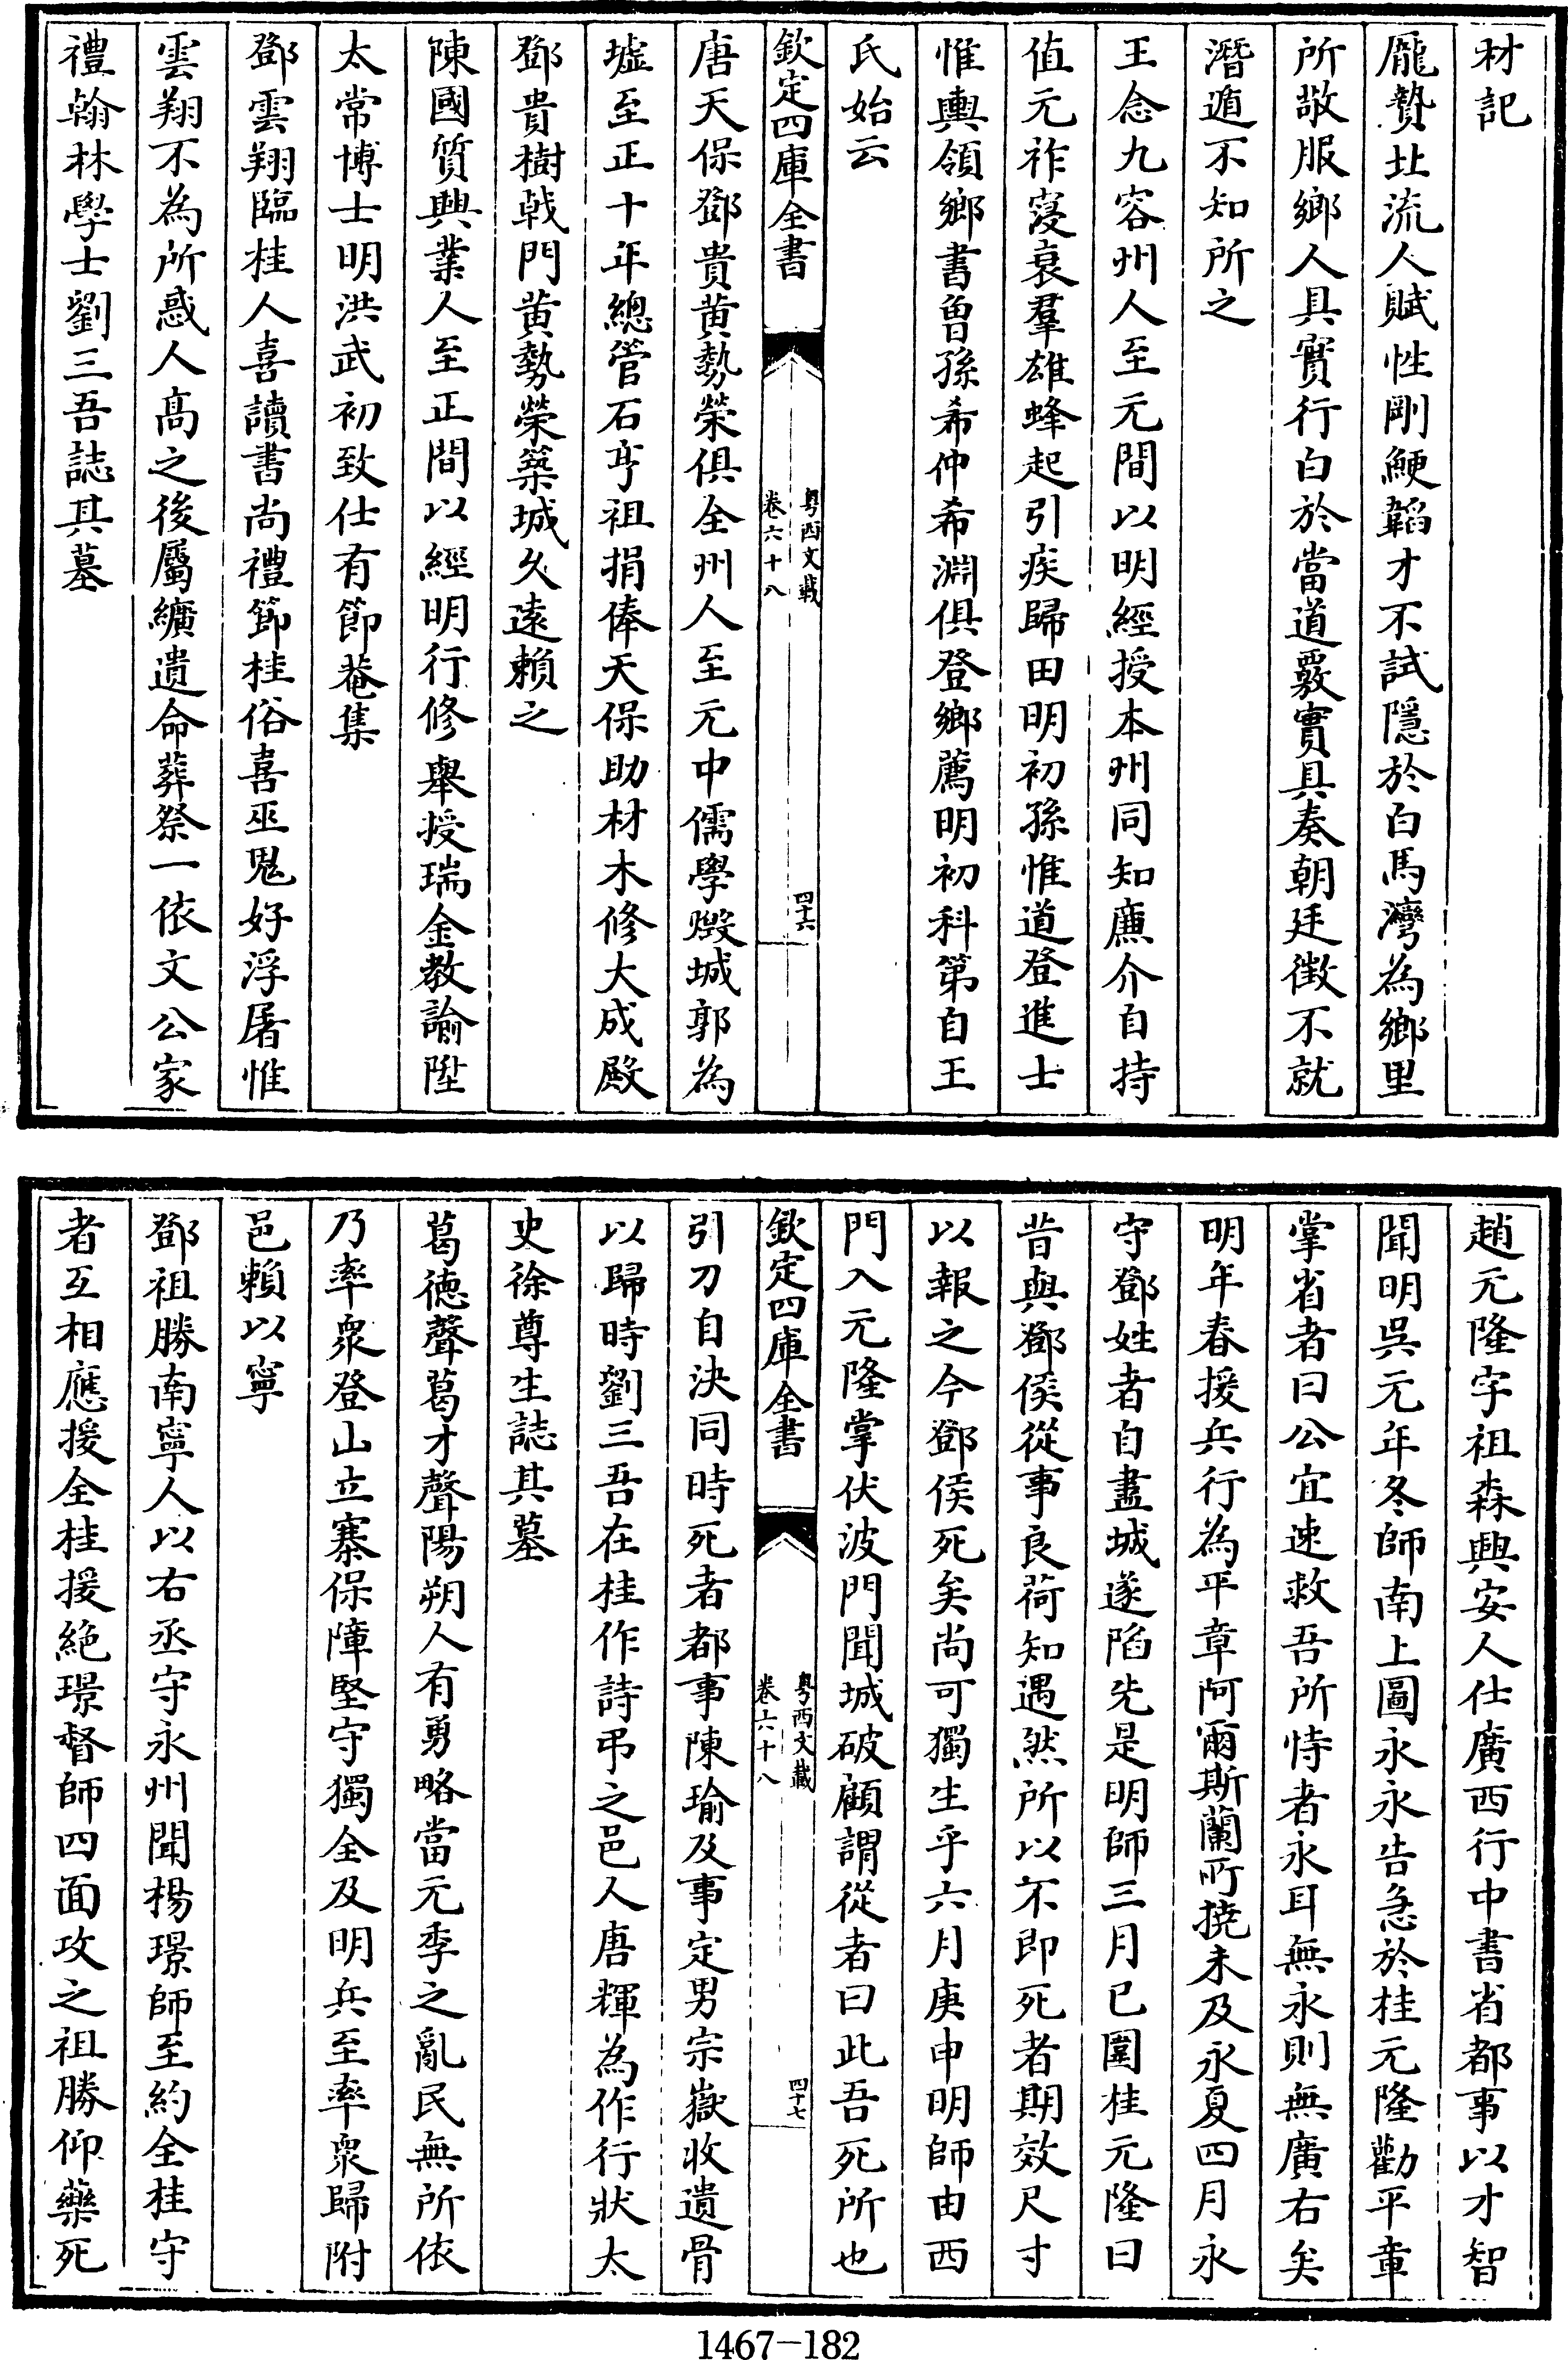 材記
龎贄北流人賦性剛鯁韜才不試隱於白馬灣為鄉里
所敬服鄉人具實行白於當道覈實具奏朝廷徵不就
潛遁不知所之
王念九容州人至元間以明經授本州同知亷介自持
值元祚寖衰羣雄蜂起引疾歸田明初孫惟道登進士
惟輿領鄉書曽孫希仲希淵俱登鄉薦明初科第自王
氏始云
欽定四庫全書
粤西文載
卷六十八
四十六
唐天保鄧貴黄勢榮俱全州人至元中儒學燬城郭為
墟至正十年總管石亨祖捐俸天保助材木修大成殿
鄧貴樹㦸門黄勢榮築城久遠賴之
陳國質興業人至正間以經明行修舉授瑞金教諭陞
太常博士明洪武初致仕有節菴集
鄧雲翔臨桂人喜讀書尚禮節桂俗喜巫鬼好浮屠惟
雲翔不為所惑人髙之後屬纊遺命葬祭一依文公家
禮翰林學士劉三吾誌其墓
趙元隆字祖森興安人仕廣西行中書省都事以才智
聞明吳元年冬師南上圖永永告急於桂元隆勸平章
掌省者曰公宜速救吾所恃者永耳無永則無廣右矣
明年春援兵行為平章阿爾斯蘭所撓未及永夏四月永
守鄧姓者自盡城遂陷先是明師三月已圍桂元隆曰
昔與鄧侯從事良荷知遇然所以不即死者期效尺寸
以報之今鄧侯死矣尚可獨生乎六月庚申明師由西
門入元隆掌伏波門聞城破顧謂從者曰此吾死所也
欽定四庫全書
粤西文載
卷六十八
四十七
引刀自決同時死者都事陳瑜及事定男宗嶽收遺骨
以歸時劉三吾在桂作詩弔之邑人唐輝為作行狀太
史徐尊生誌其墓
葛徳聲葛才聲陽朔人有勇略當元季之亂民無所依
乃率衆登山立寨保障堅守獨全及明兵至率衆歸附
邑賴以寧
鄧祖勝南寧人以右丞守永州聞楊璟師至約全桂守
者互相應援全桂援絶璟督師四面攻之祖勝仰藥死
1467-182